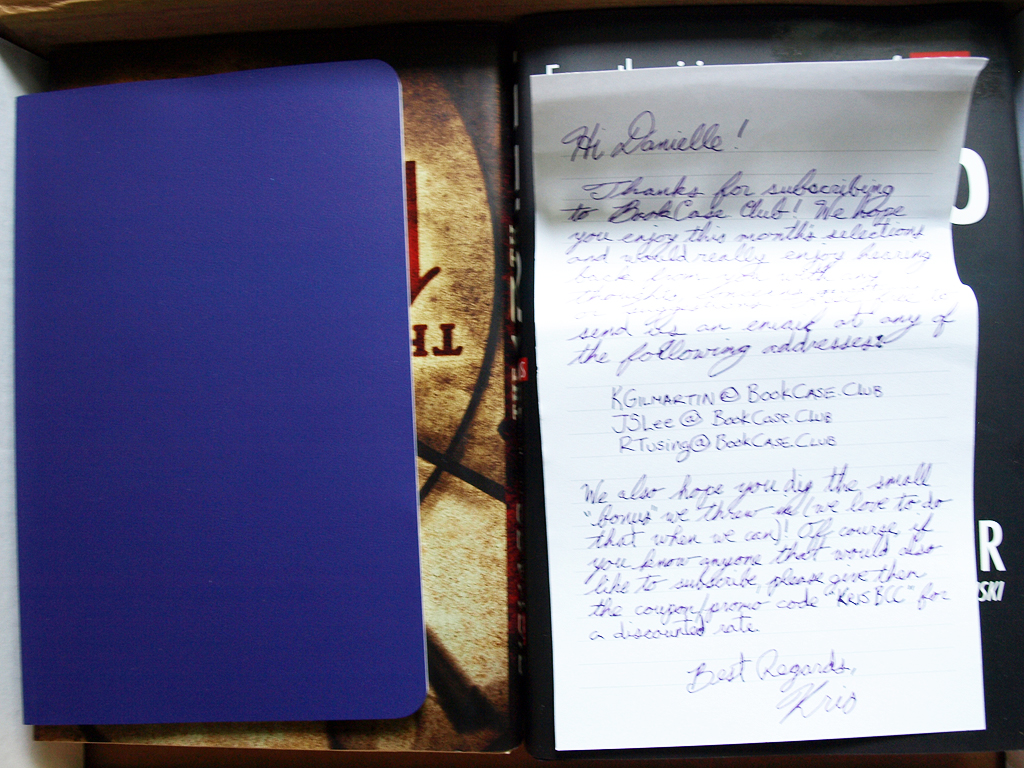 Hi Danielle!
Thanks for subscribing
to BookCase Club! We hope
you enjoy this month's selections
and would really enjoy hearing
back from you with any
thoughts
send us an email at any of
the following addresses:
KGILMARTIN@BOOKCASE.CLUB
JSLee@BOOKCASE.CLUB
RTusing@BOOKCASE.CLUB
We also hope you dig the small
"bonus" we threw in (we love to do
that when we can)! Of course if
you know anyone that would also
like to subscribe, please give them
the coupon/promo code "KRISBCC" for
a discounted rate.
Best Regards,
Kris
TH
THE
O
R
SKI